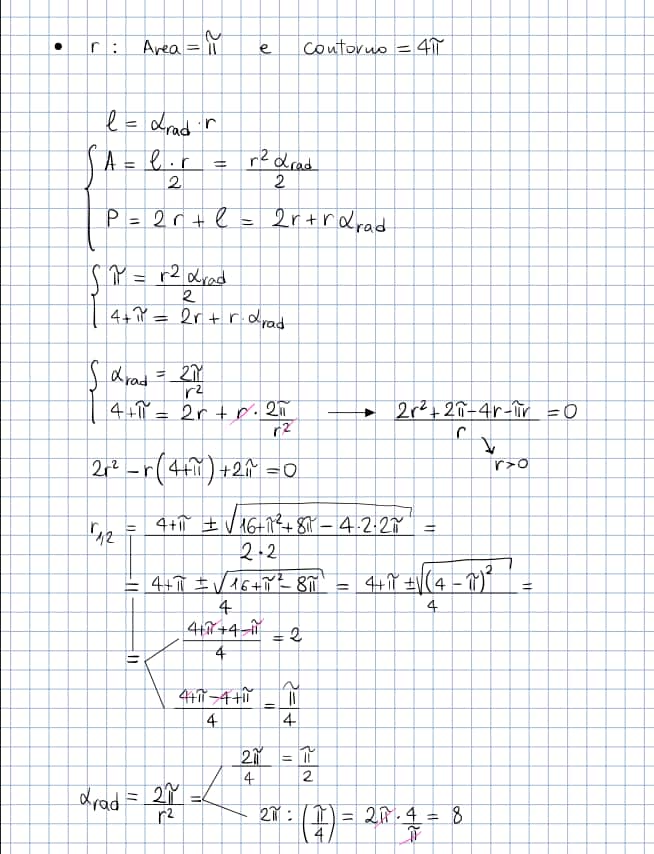 • r : Area = π e contorno = 4π
l = α_rad · r
{ A = l · r / 2 = r² α_rad / 2
P = 2r + l = 2r + r α_rad
{ π = r² α_rad / 2
4+π = 2r + r · α_rad
{ α_rad = 2π / r²
4+π = 2r + r · 2π / r² → 2r² + 2π - 4r - πr / r = 0
↘ r>0
2r² - r(4+π) + 2π = 0
r₁₂ = 4+π ± √(16+π²+8π - 4·2·2π) / 2·2 =
= 4+π ± √(16+π²-8π) / 4 = 4+π ± √(4-π)² / 4 =
= 4+π+4-π / 4 = 2
4+π-4+π / 4 = π / 4
α_rad = 2π / r² = 2π / 4 = π / 2
2π : (π / 4) = 2π · 4 / π = 8